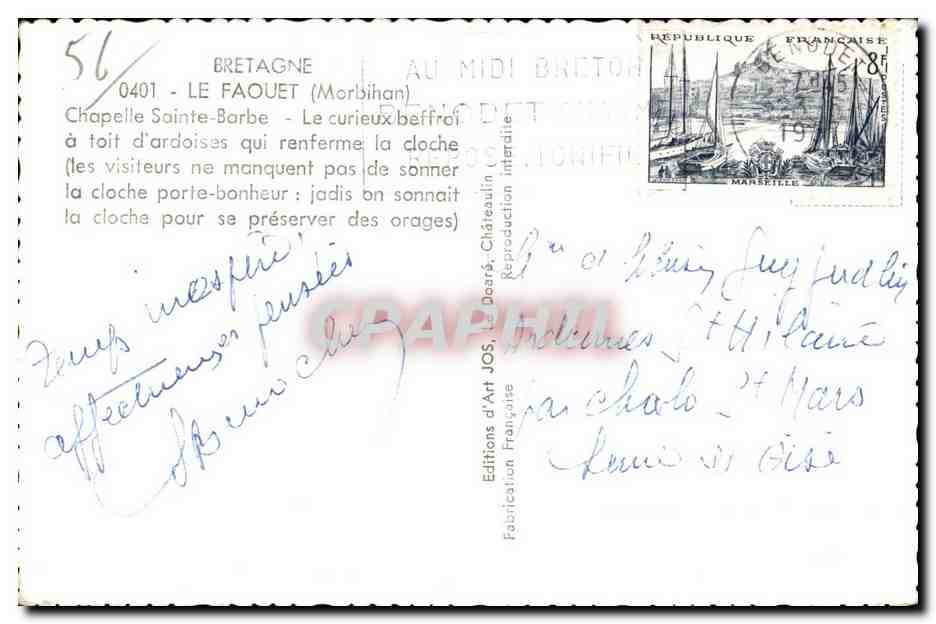 56
BRETAGNE
0401 - LE FAOUET (Morbihan)
Chapelle Sainte-Barbe - Le curieux beffroi
à toit d'ardoises qui renferme la cloche
(les visiteurs ne manquent pas de sonner
la cloche porte-bonheur : jadis on sonnait
la cloche pour se préserver des orages)
AU MIDI BRETON
BENODET
REPOS
RÉPUBLIQUE FRANÇAISE
8F
POSTES
MARSEILLE
BENODET
19
Editions d'Art JOS, Le Doaré, Châteaulin
Fabrication Française
Reproduction interdite
CPAPHIL
Temps inespéré,
affectueuses pensées
et
Ardennes St Hilaire
par Chalo St Mars
Seine et Oise